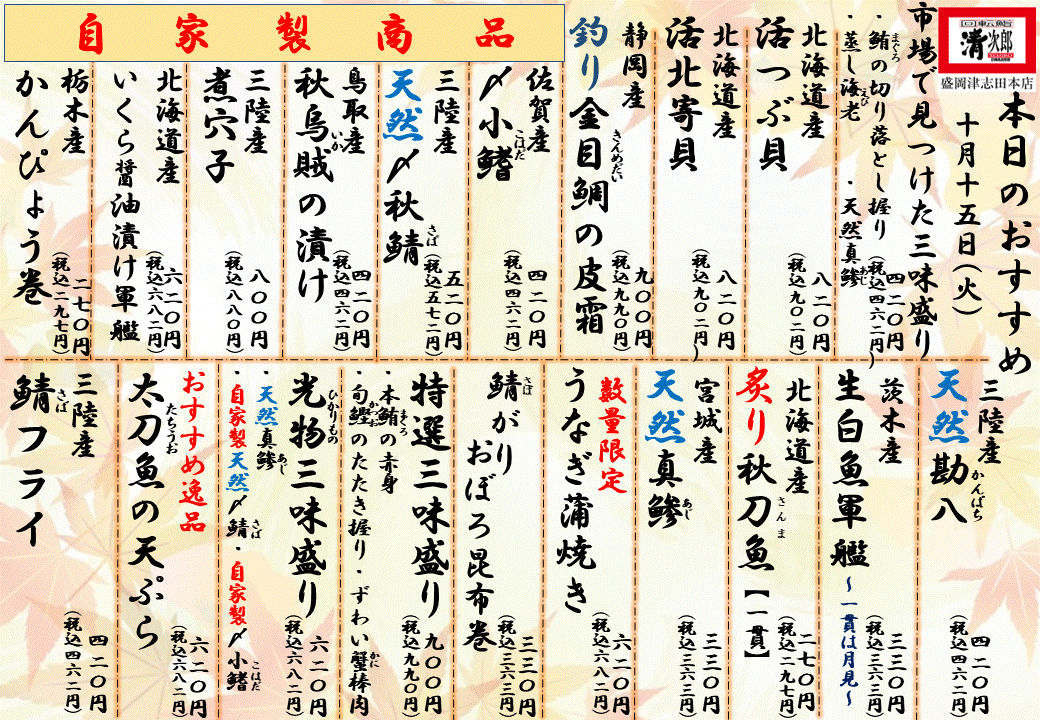 回転鮨
清次郎
盛岡津志田本店
本日のおすすめ
十月十五日(火)
市場で見つけた三味盛り
・鮪の切り落とし握り
まぐろ
・蒸し海老 ・天然真鯵
えび
あじ
四二〇円
(税込四六二円)
北海道産
活つぶ貝
八二〇円
(税込九〇二円)
北海道産
活北寄貝
八二〇円
(税込九〇二円)
静岡産
釣り金目鯛の皮霜
きんめだい
九〇〇円
(税込九九〇円)
自家製商品
佐賀産
〆小鰭
こはだ
四二〇円
(税込四六二円)
三陸産
天然〆秋鯖
さば
五二〇円
(税込五七二円)
鳥取産
秋烏賊の漬け
いか
四二〇円
(税込四六二円)
三陸産
煮穴子
八〇〇円
(税込八八〇円)
北海道産
いくら醤油漬け軍艦
六二〇円
(税込六八二円)
栃木産
かんぴょう巻
二七〇円
(税込二九七円)
三陸産
天然勘八
かんぱち
四二〇円
(税込四六二円)
茨木産
生白魚軍艦
~一貫は月見~
三三〇円
(税込三六三円)
北海道産
炙り秋刀魚【一貫】
さんま
二七〇円
(税込二九七円)
宮城産
天然真鯵
あじ
三三〇円
(税込三六三円)
数量限定
うなぎ蒲焼き
六二〇円
(税込六八二円)
鯖がり
さば
おぼろ昆布巻
三三〇円
(税込三六三円)
特選三味盛り
・本鮪の赤身
まぐろ
・旬鰹のたたき握り・ずわい蟹棒肉
かつお
かに
九〇〇円
(税込九九〇円)
光物三味盛り
ひかりもの
・天然真鯵
あじ
・自家製天然〆鯖・自家製〆小鰭
さば
こはだ
六二〇円
(税込六八二円)
おすすめ逸品
太刀魚の天ぷら
たちうお
六二〇円
(税込六八二円)
三陸産
鯖フライ
さば
四二〇円
(税込四六二円)